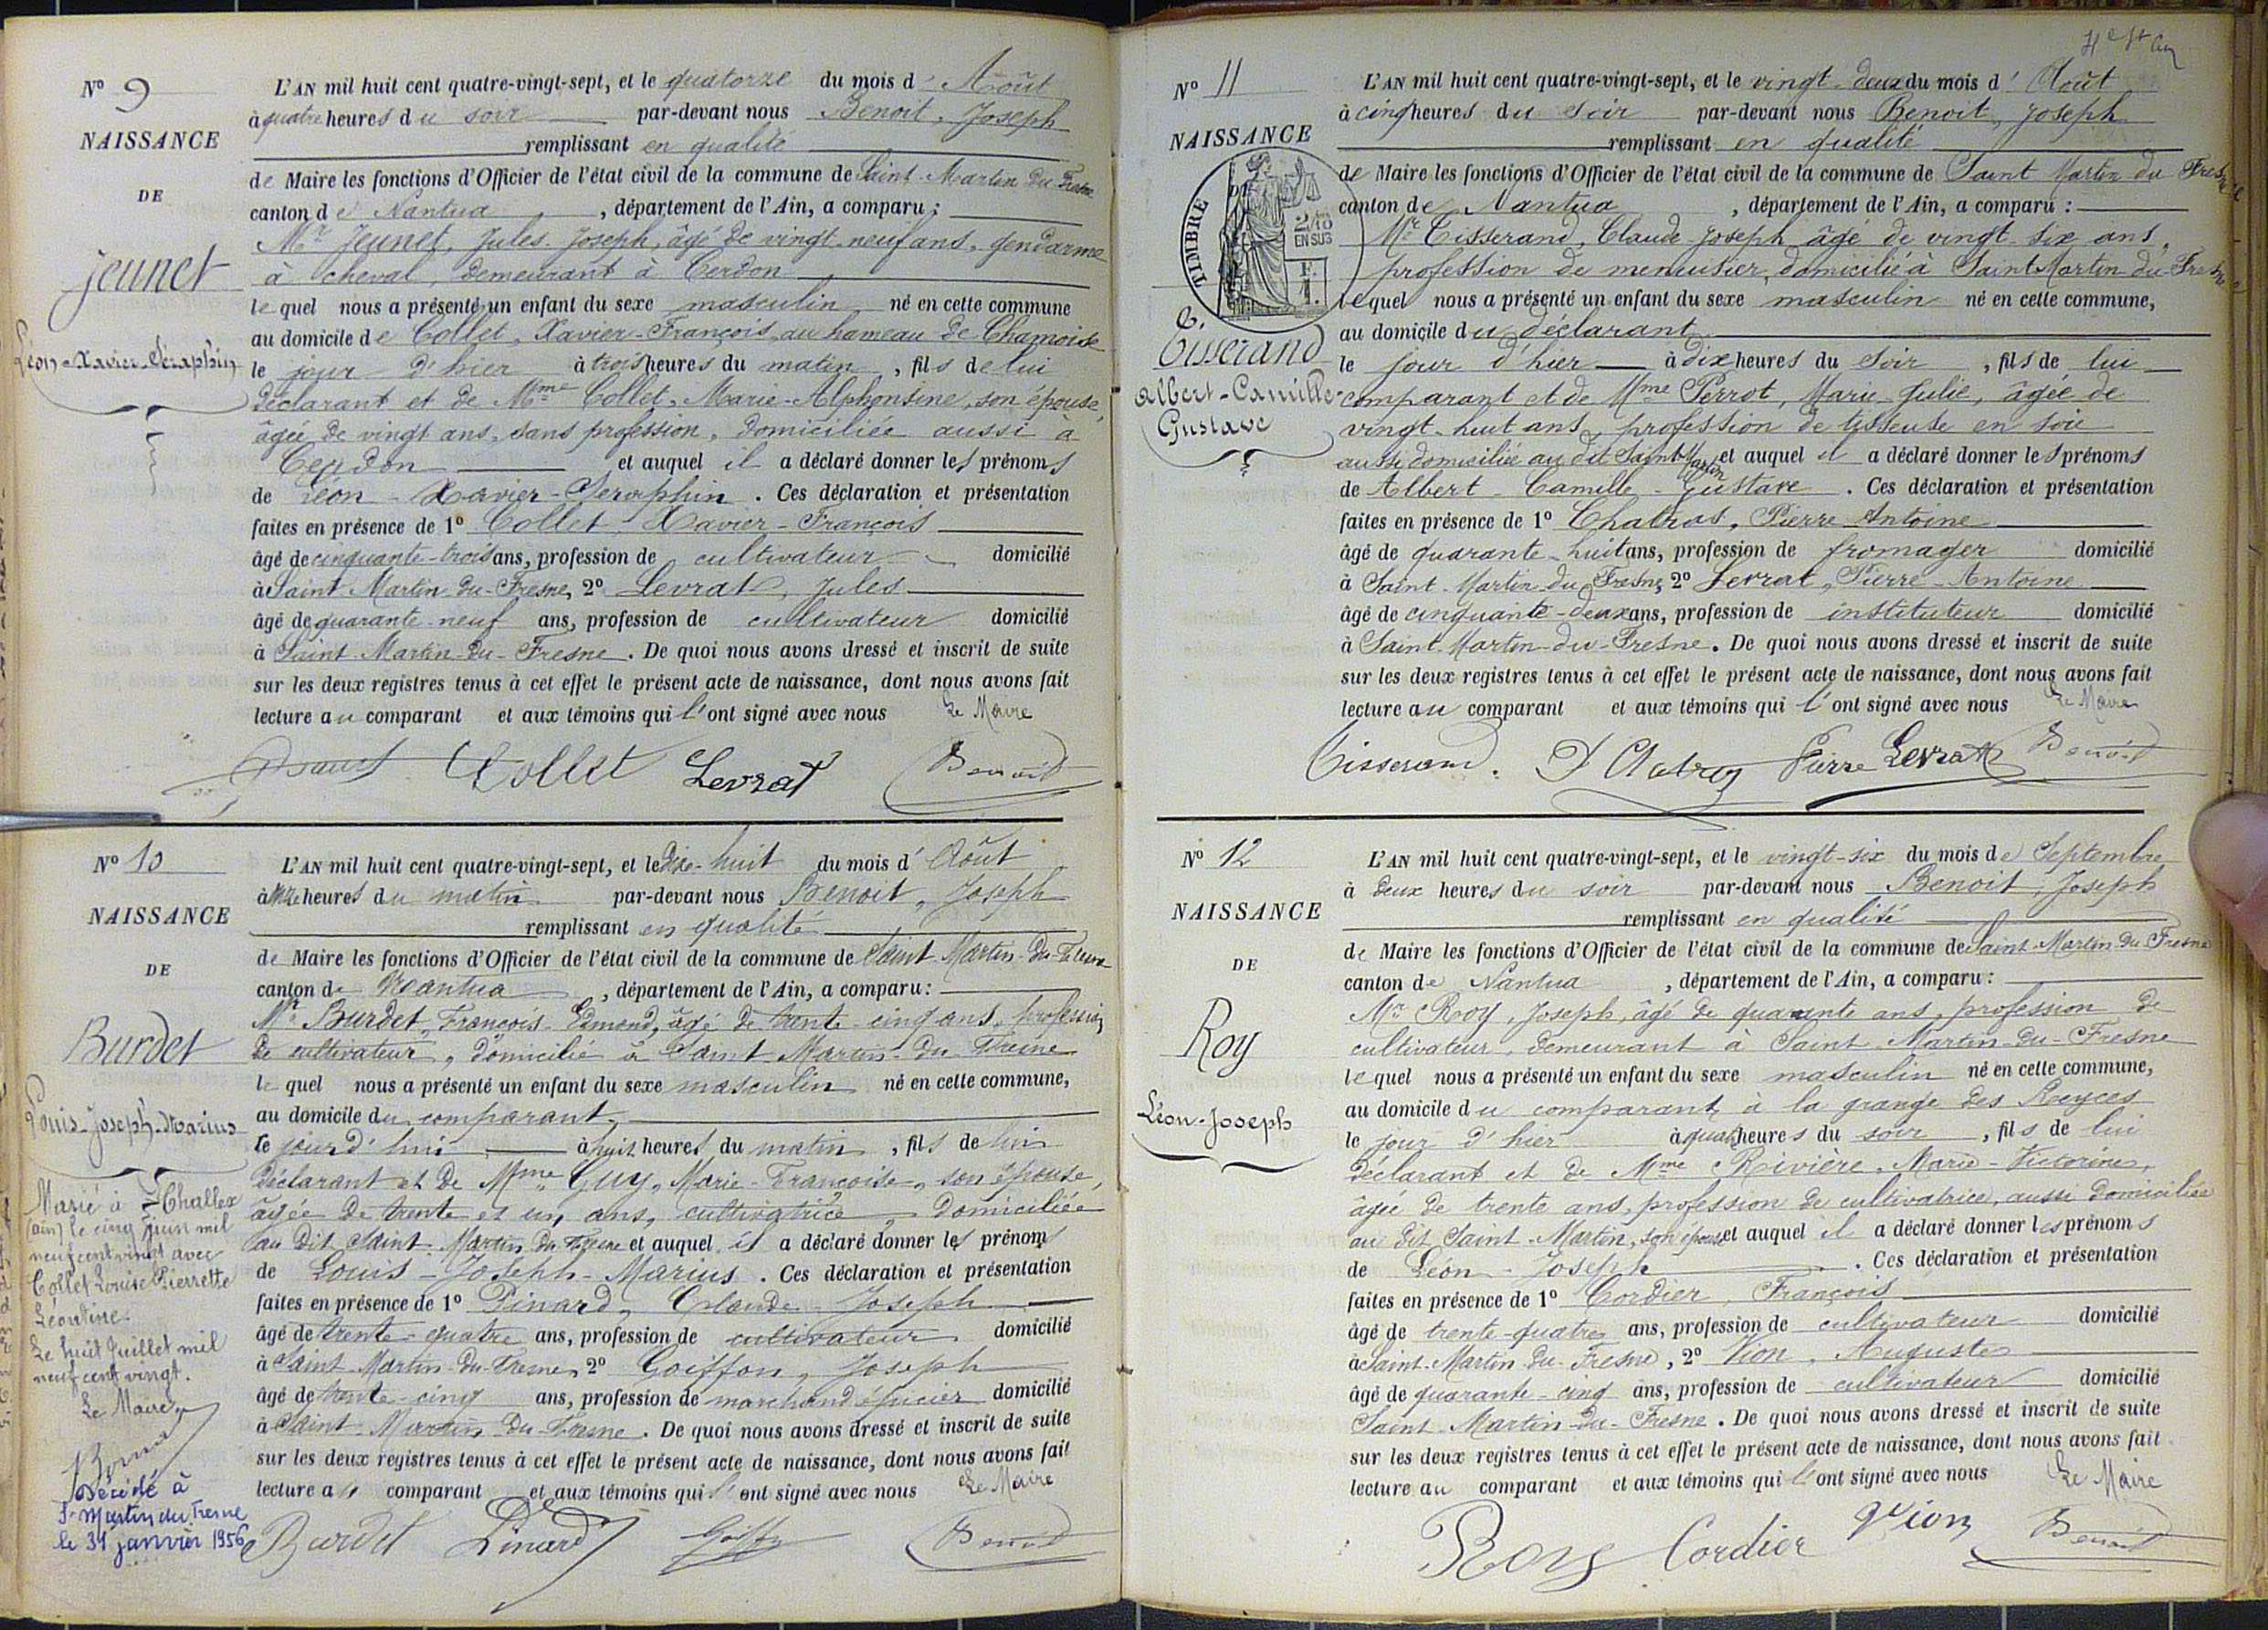 N° 9
NAISSANCE
DE
Jeunet
Léon-Xavier-Séraphin
L'AN mil huit cent quatre-vingt-sept, et le quatorze du mois d'Août
à quatre heures du soir par-devant nous Benoit, Joseph
remplissant en qualité
de Maire les fonctions d'Officier de l'état civil de la commune de Saint-Martin du Fresne
canton de Nantua, département de l'Ain, a comparu :
Mr Jeunet, Jules-Joseph, âgé de vingt-neuf ans, gendarme
à cheval, demeurant à Cerdon
lequel nous a présenté un enfant du sexe masculin né en cette commune
au domicile de Collet, Xavier-François, au hameau de Chamoise
le jour d'hier à trois heures du matin, fils de lui
déclarant et de Mme Collet, Marie-Alphonsine, son épouse,
âgée de vingt ans, sans profession, domiciliée aussi à
Cerdon et auquel il a déclaré donner les prénoms
de Léon-Xavier-Seraphin. Ces déclaration et présentation
faites en présence de 1° Collet, Xavier-François
âgé de cinquante-trois ans, profession de cultivateur domicilié
à Saint-Martin-du-Fresne, 2° Levrat, Jules
âgé de quarante-neuf ans, profession de cultivateur domicilié
à Saint-Martin-du-Fresne. De quoi nous avons dressé et inscrit de suite
sur les deux registres tenus à cet effet le présent acte de naissance, dont nous avons fait
lecture au comparant et aux témoins qui l'ont signé avec nous Le Maire
Collet Levrat Benoit
N° 10
NAISSANCE
DE
Burdet
Louis-Joseph-Marius
Marié à Challex
(ain) le cinq Juin mil
neuf cent vingt avec
Collet Louise Pierrette
Léontine.
Le huit Juillet mil
neuf cent vingt.
Le Maire
Décédé à
St Martin du Fresne
le 31 janvier 1956
L'AN mil huit cent quatre-vingt-sept, et le dix-huit du mois d'Août
à onze heures du matin par-devant nous Benoit, Joseph
remplissant en qualité
de Maire les fonctions d'Officier de l'état civil de la commune de Saint-Martin-du-Fresne
canton de Nantua, département de l'Ain, a comparu:
Mr Burdet, François-Edmond, âgé de trente-cinq ans, profession
de cultivateur, domicilié à Saint Martin-du-Fresne
lequel nous a présenté un enfant du sexe masculin né en cette commune,
au domicile du comparant
le jour d'hui à huit heures du matin, fils de lui
déclarant et de Mme Guy, Marie-Françoise, son épouse,
âgée de trente et un ans, cultivatrice, domiciliée
au dit Saint-Martin du Fresne et auquel il a déclaré donner les prénoms
de Louis-Joseph-Marius. Ces déclaration et présentation
faites en présence de 1° Pinard, Claude-Joseph
âgé de trente-quatre ans, profession de cultivateur domicilié
à Saint Martin-du-Fresne, 2° Goiffon, Joseph
âgé de trente-cinq ans, profession de marchand épicier domicilié
à Saint-Martin-du-Fresne. De quoi nous avons dressé et inscrit de suite
sur les deux registres tenus à cet effet le présent acte de naissance, dont nous avons fait
lecture au comparant et aux témoins qui l'ont signé avec nous Le Maire
Burdet Pinard Goiffon Benoit
N° 11
NAISSANCE
DE
TIMBRE
2/10
EN SUS
C.
Tisserand
Albert-Camille-
Gustave
L'AN mil huit cent quatre-vingt-sept, et le vingt-deux du mois d'Août
à cinq heures du soir par-devant nous Benoit, Joseph
remplissant en qualité
de Maire les fonctions d'Officier de l'état civil de la commune de Saint Martin du Fresne
canton de Nantua, département de l'Ain, a comparu :
Mr Tisserand, Claude-Joseph âgé de vingt-six ans,
profession de menuisier, domicilié à Saint Martin du Fresne
lequel nous a présenté un enfant du sexe masculin né en cette commune,
au domicile du déclarant
le jour d'hier à dix heures du soir, fils de lui
comparant et de Mme Perrot, Marie-Julie, âgée de
vingt-huit ans, profession de tisseuse en soie
aussi domiciliée au dit Saint-Martin et auquel il a déclaré donner les prénoms
de Albert-Camille-Gustave. Ces déclaration et présentation
faites en présence de 1° Chatras, Pierre Antoine
âgé de quarante-huit ans, profession de fromager domicilié
à Saint-Martin du Fresne, 2° Levrat, Pierre-Antoine
âgé de cinquante-deux ans, profession de instituteur domicilié
à Saint-Martin-du-Fresne. De quoi nous avons dressé et inscrit de suite
sur les deux registres tenus à cet effet le présent acte de naissance, dont nous avons fait
lecture au comparant et aux témoins qui l'ont signé avec nous Le Maire
Tisserand. Pierre Levrat Benoit
N° 12
NAISSANCE
DE
Roy
Léon-Joseph
L'AN mil huit cent quatre-vingt-sept, et le vingt-six du mois de Septembre
à deux heures du soir par-devant nous Benoit, Joseph
remplissant en qualité
de Maire les fonctions d'Officier de l'état civil de la commune de Saint-Martin-du-Fresne
canton de Nantua, département de l'Ain, a comparu:
Mr Roy, Joseph, âgé de quarante ans, profession de
cultivateur, demeurant à Saint-Martin-du-Fresne
lequel nous a présenté un enfant du sexe masculin né en cette commune,
au domicile du comparant, à la grange des
le jour d'hier à quatre heures du soir, fils de lui
déclarant et de Mme Rivière, Marie-Victorine,
âgée de trente ans, profession de cultivatrice, aussi domiciliée
au dit Saint-Martin, son épouse et auquel il a déclaré donner les prénoms
de Léon-Joseph. Ces déclaration et présentation
faites en présence de 1° Cordier, François
âgé de trente-quatre ans, profession de cultivateur domicilié
à Saint-Martin-du-Fresne, 2° Vion, Auguste
âgé de quarante-cinq ans, profession de cultivateur domicilié
Saint-Martin-du-Fresne. De quoi nous avons dressé et inscrit de suite
sur les deux registres tenus à cet effet le présent acte de naissance, dont nous avons fait
lecture au comparant et aux témoins qui l'ont signé avec nous Le Maire
Roy Cordier Vion Benoit